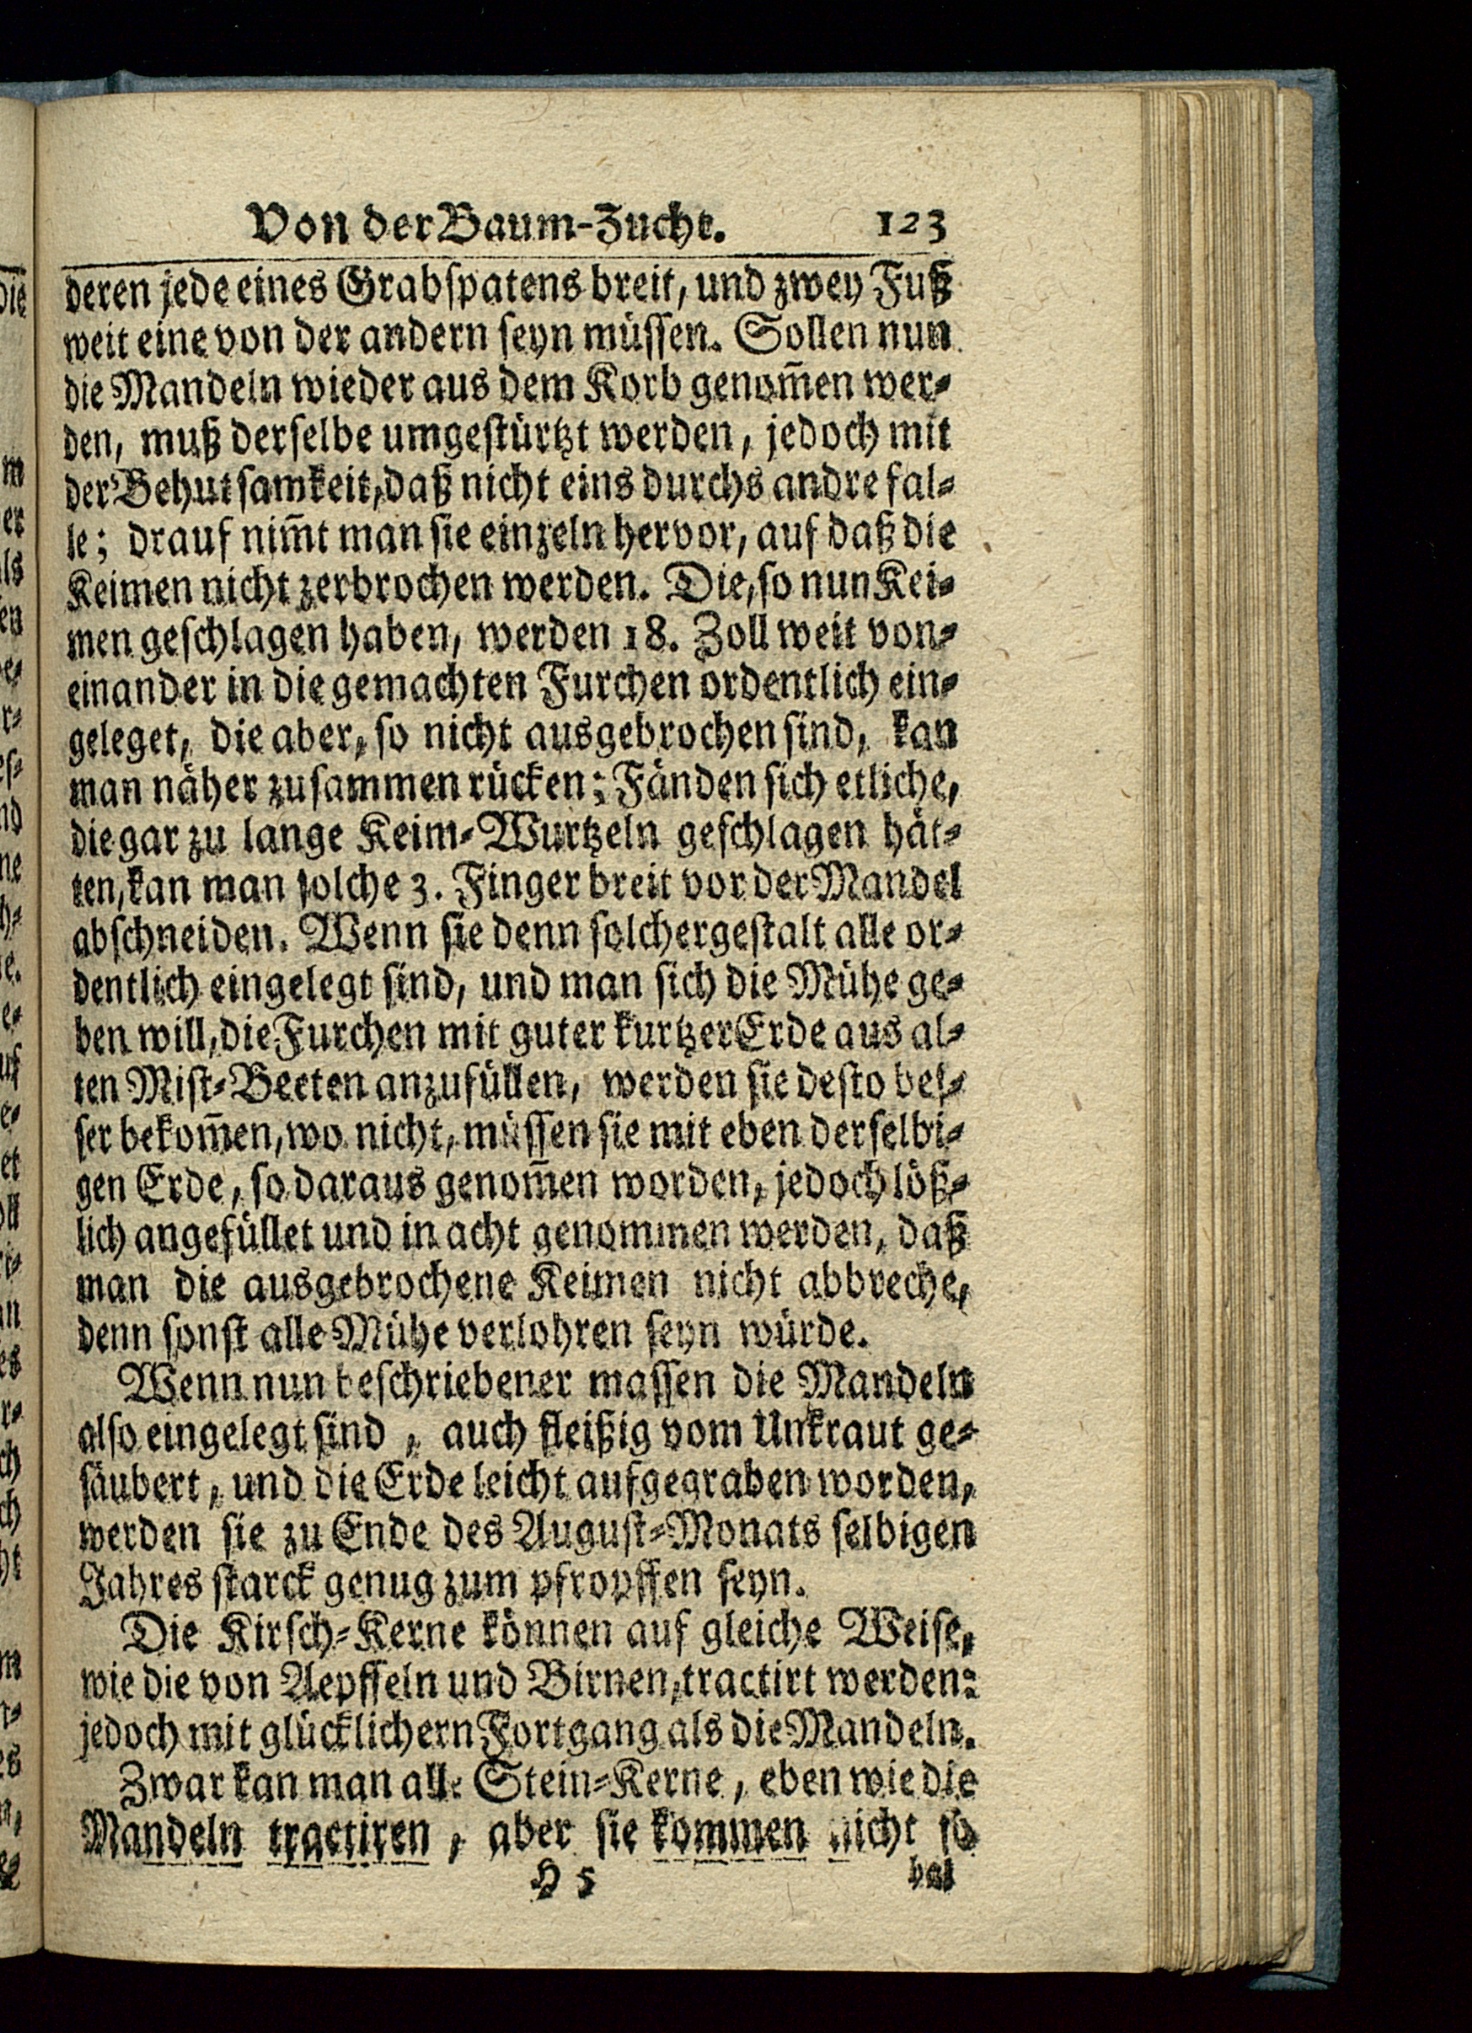 Von der Baum-Zucht. 123
deren jede eines Grabspatens breit, und zwey Fuß
weit eine von der andern seyn müssen. Sollen nun
die Mandeln wieder aus dem Korb genom̃en wer-
den, muß derselbe umgestürtzt werden, jedoch mit
der Behutsamkeit, daß nicht eins durchs andre fal-
le; drauf nim̃t man sie einzeln hervor, auf daß die
Keimen nicht zerbrochen werden. Die, so nun Kei-
men geschlagen haben, werden 18. Zoll weit von-
einander in die gemachten Furchen ordentlich ein-
geleget, die aber, so nicht ausgebrochen sind, kan
man näher zusammen rücken; Fänden sich etliche,
die gar zu lange Keim-Wurtzeln geschlagen hät-
ten, kan man solche 3. Finger breit vor der Mandel
abschneiden. Wenn sie denn solchergestalt alle or-
dentlich eingelegt sind, und man sich die Mühe ge-
ben will, die Furchen mit guter kurtzer Erde aus al-
ten Mist-Beeten anzufüllen, werden sie desto bes-
ser bekom̃en, wo nicht, müssen sie mit eben derselbi-
gen Erde, so daraus genom̃en worden, jedoch löß-
lich angefüllet und in acht genommen werden, daß
man die ausgebrochene Keimen nicht abbreche,
denn sonst alle Mühe verlohren seyn würde.
Wenn nun beschriebener massen die Mandeln
also eingelegt sind, auch fleißig vom Unkraut ge-
säubert, und die Erde leicht aufgegraben worden,
werden sie zu Ende des August-Monats selbigen
Jahres starck genug zum pfropffen seyn.
Die Kirsch-Kerne können auf gleiche Weise,
wie die von Aepffeln und Birnen, tractirt werden:
jedoch mit glücklichern Fortgang als die Mandeln.
Zwar kan man alle Stein-Kerne, eben wie die
Mandeln tractiren, aber sie kommen nicht so
H 5